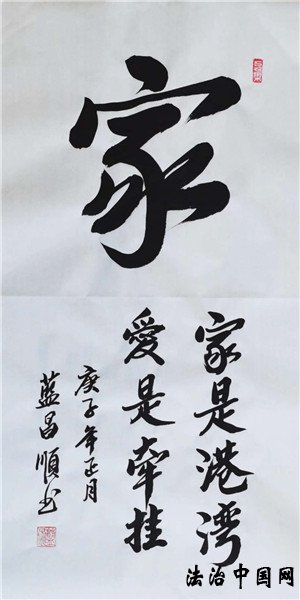 家
家是港湾
愛是牵挂
庚子年正月
蓝昌順书
法治中国网